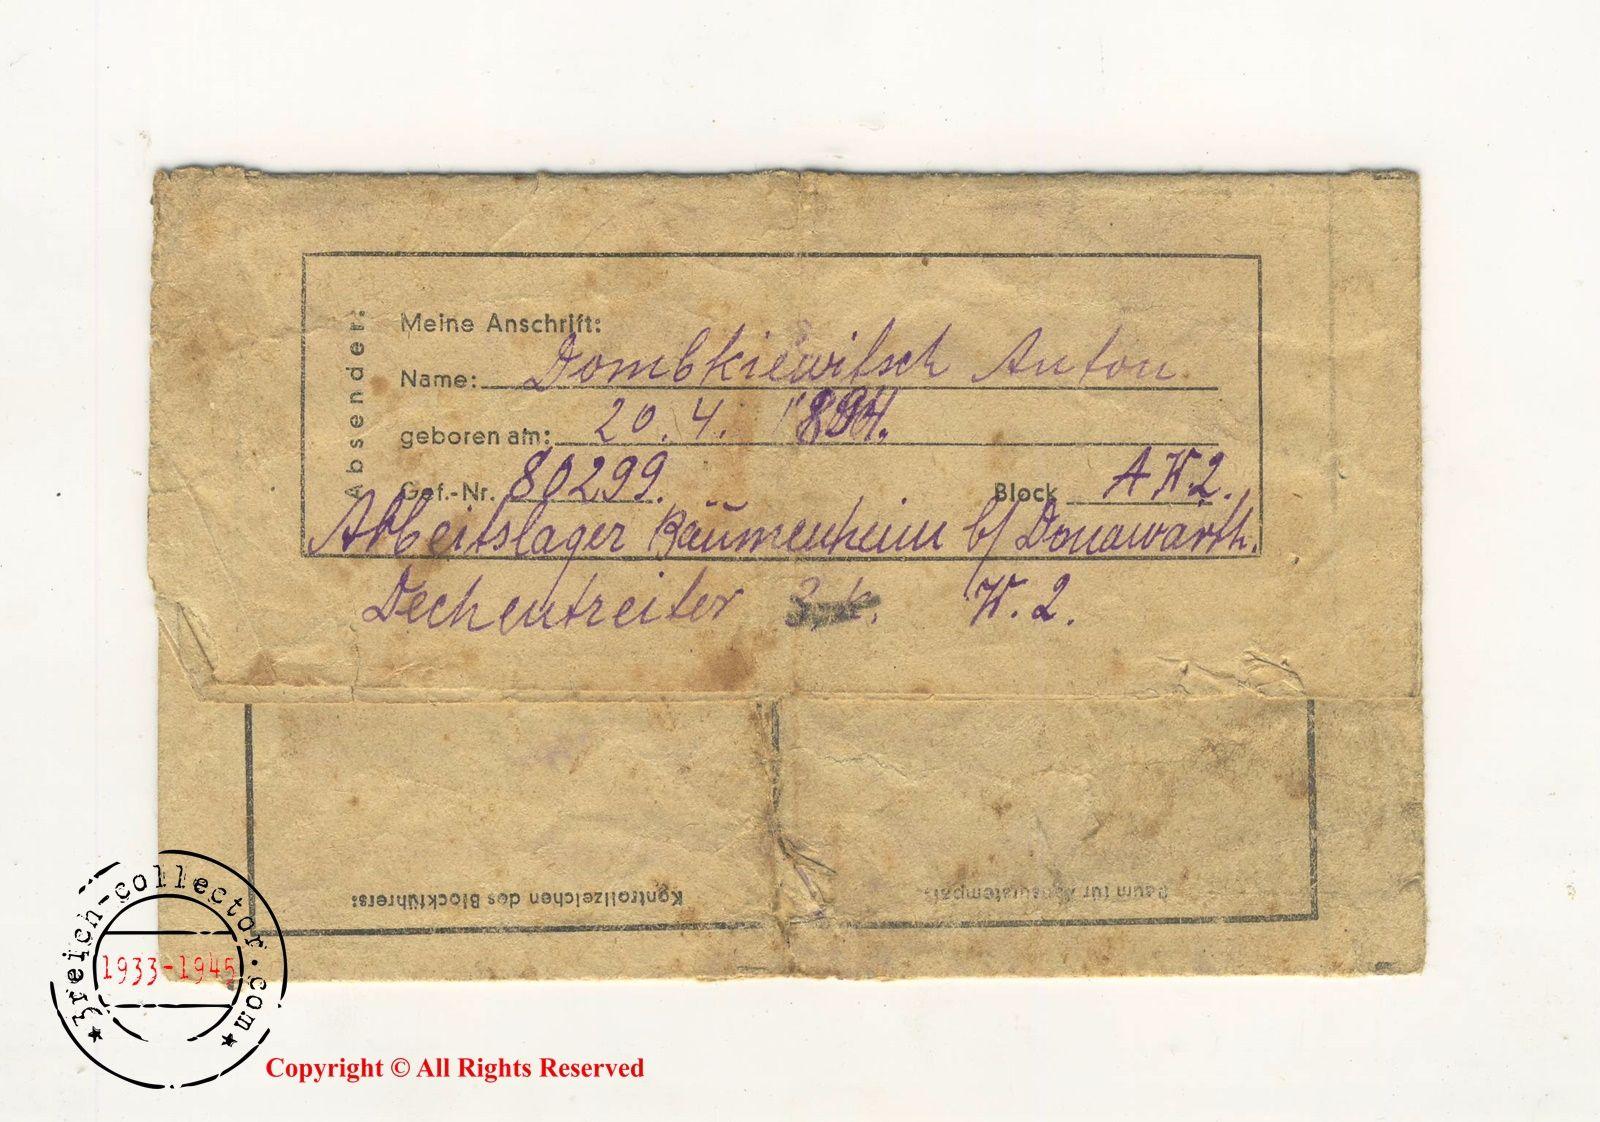 Absender:
Meine Anschrift:
Name: Dombkiewitsch Anton
geboren am: 20.4. 1894.
Gef.-Nr. 80299. Block A W.2.
Arbeitslager Bäumenheim b/ Donawörth.
Dechentreiter W. 2.
Kontrollzeichen des Blockführers:
Raum für Zensurstempel:
3reich-collector.com
1933-1945
Copyright © All Rights Reserved